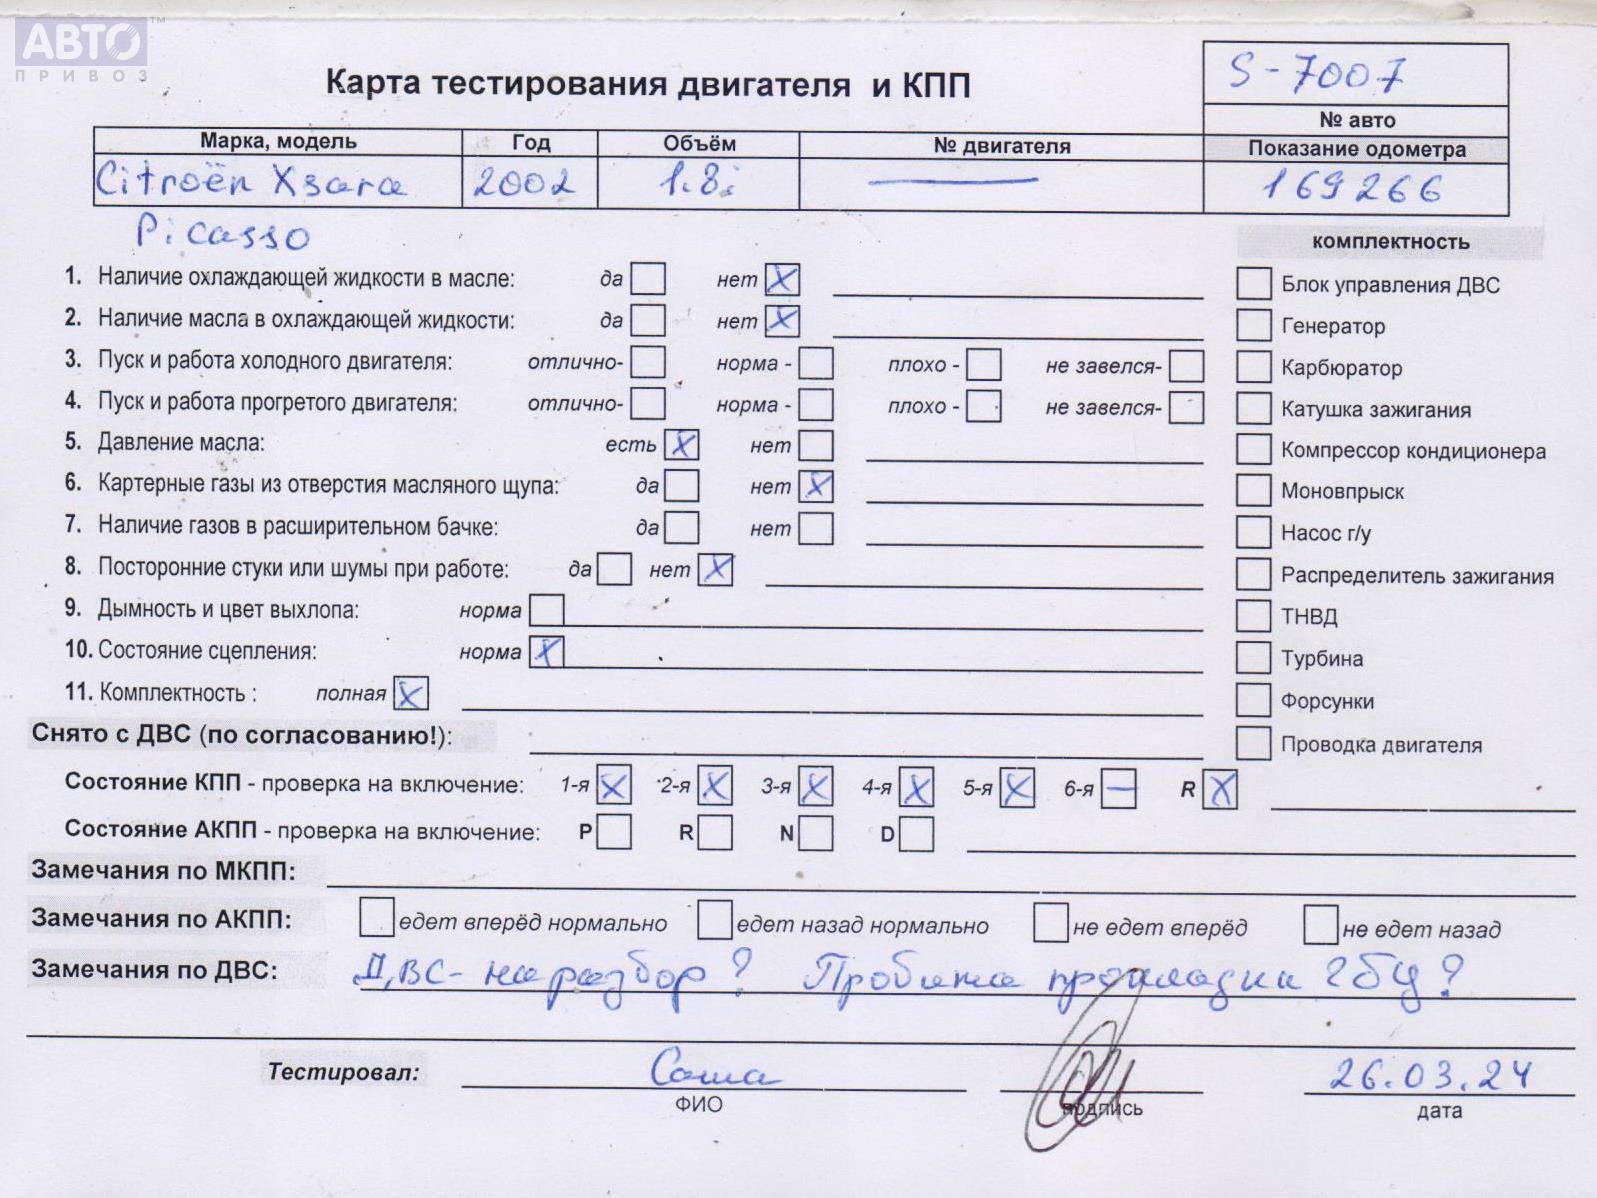 АВТО™
ПРИВОЗ
S-7007
Карта тестирования двигателя и КПП
№ авто
Марка, модель Год Объём № двигателя Показание одометра
Citroën Xsara 2002 1.8i — 169266
Picasso
комплектность
1. Наличие охлаждающей жидкости в масле: да нет X
Блок управления ДВС
2. Наличие масла в охлаждающей жидкости: да нет X
Генератор
3. Пуск и работа холодного двигателя: отлично- норма - плохо - не завелся-
Карбюратор
4. Пуск и работа прогретого двигателя: отлично- норма - плохо - не завелся-
Катушка зажигания
5. Давление масла: есть X нет
Компрессор кондиционера
6. Картерные газы из отверстия масляного щупа: да нет X
Моновпрыск
7. Наличие газов в расширительном бачке: да нет
Насос г/у
8. Посторонние стуки или шумы при работе: да нет X
Распределитель зажигания
9. Дымность и цвет выхлопа: норма
ТНВД
10. Состояние сцепления: норма X
Турбина
11. Комплектность : полная X
Форсунки
Снято с ДВС (по согласованию!):
Проводка двигателя
Состояние КПП - проверка на включение: 1-я X 2-я X 3-я X 4-я X 5-я X 6-я — R X
Состояние АКПП - проверка на включение: P R N D
Замечания по МКПП:
Замечания по АКПП: едет вперёд нормально едет назад нормально не едет вперёд не едет назад
Замечания по ДВС: ДВС - на разбор? Пробита прокладка ГБЦ?
Тестировал: Саша 26.03.24
ФИО подпись дата